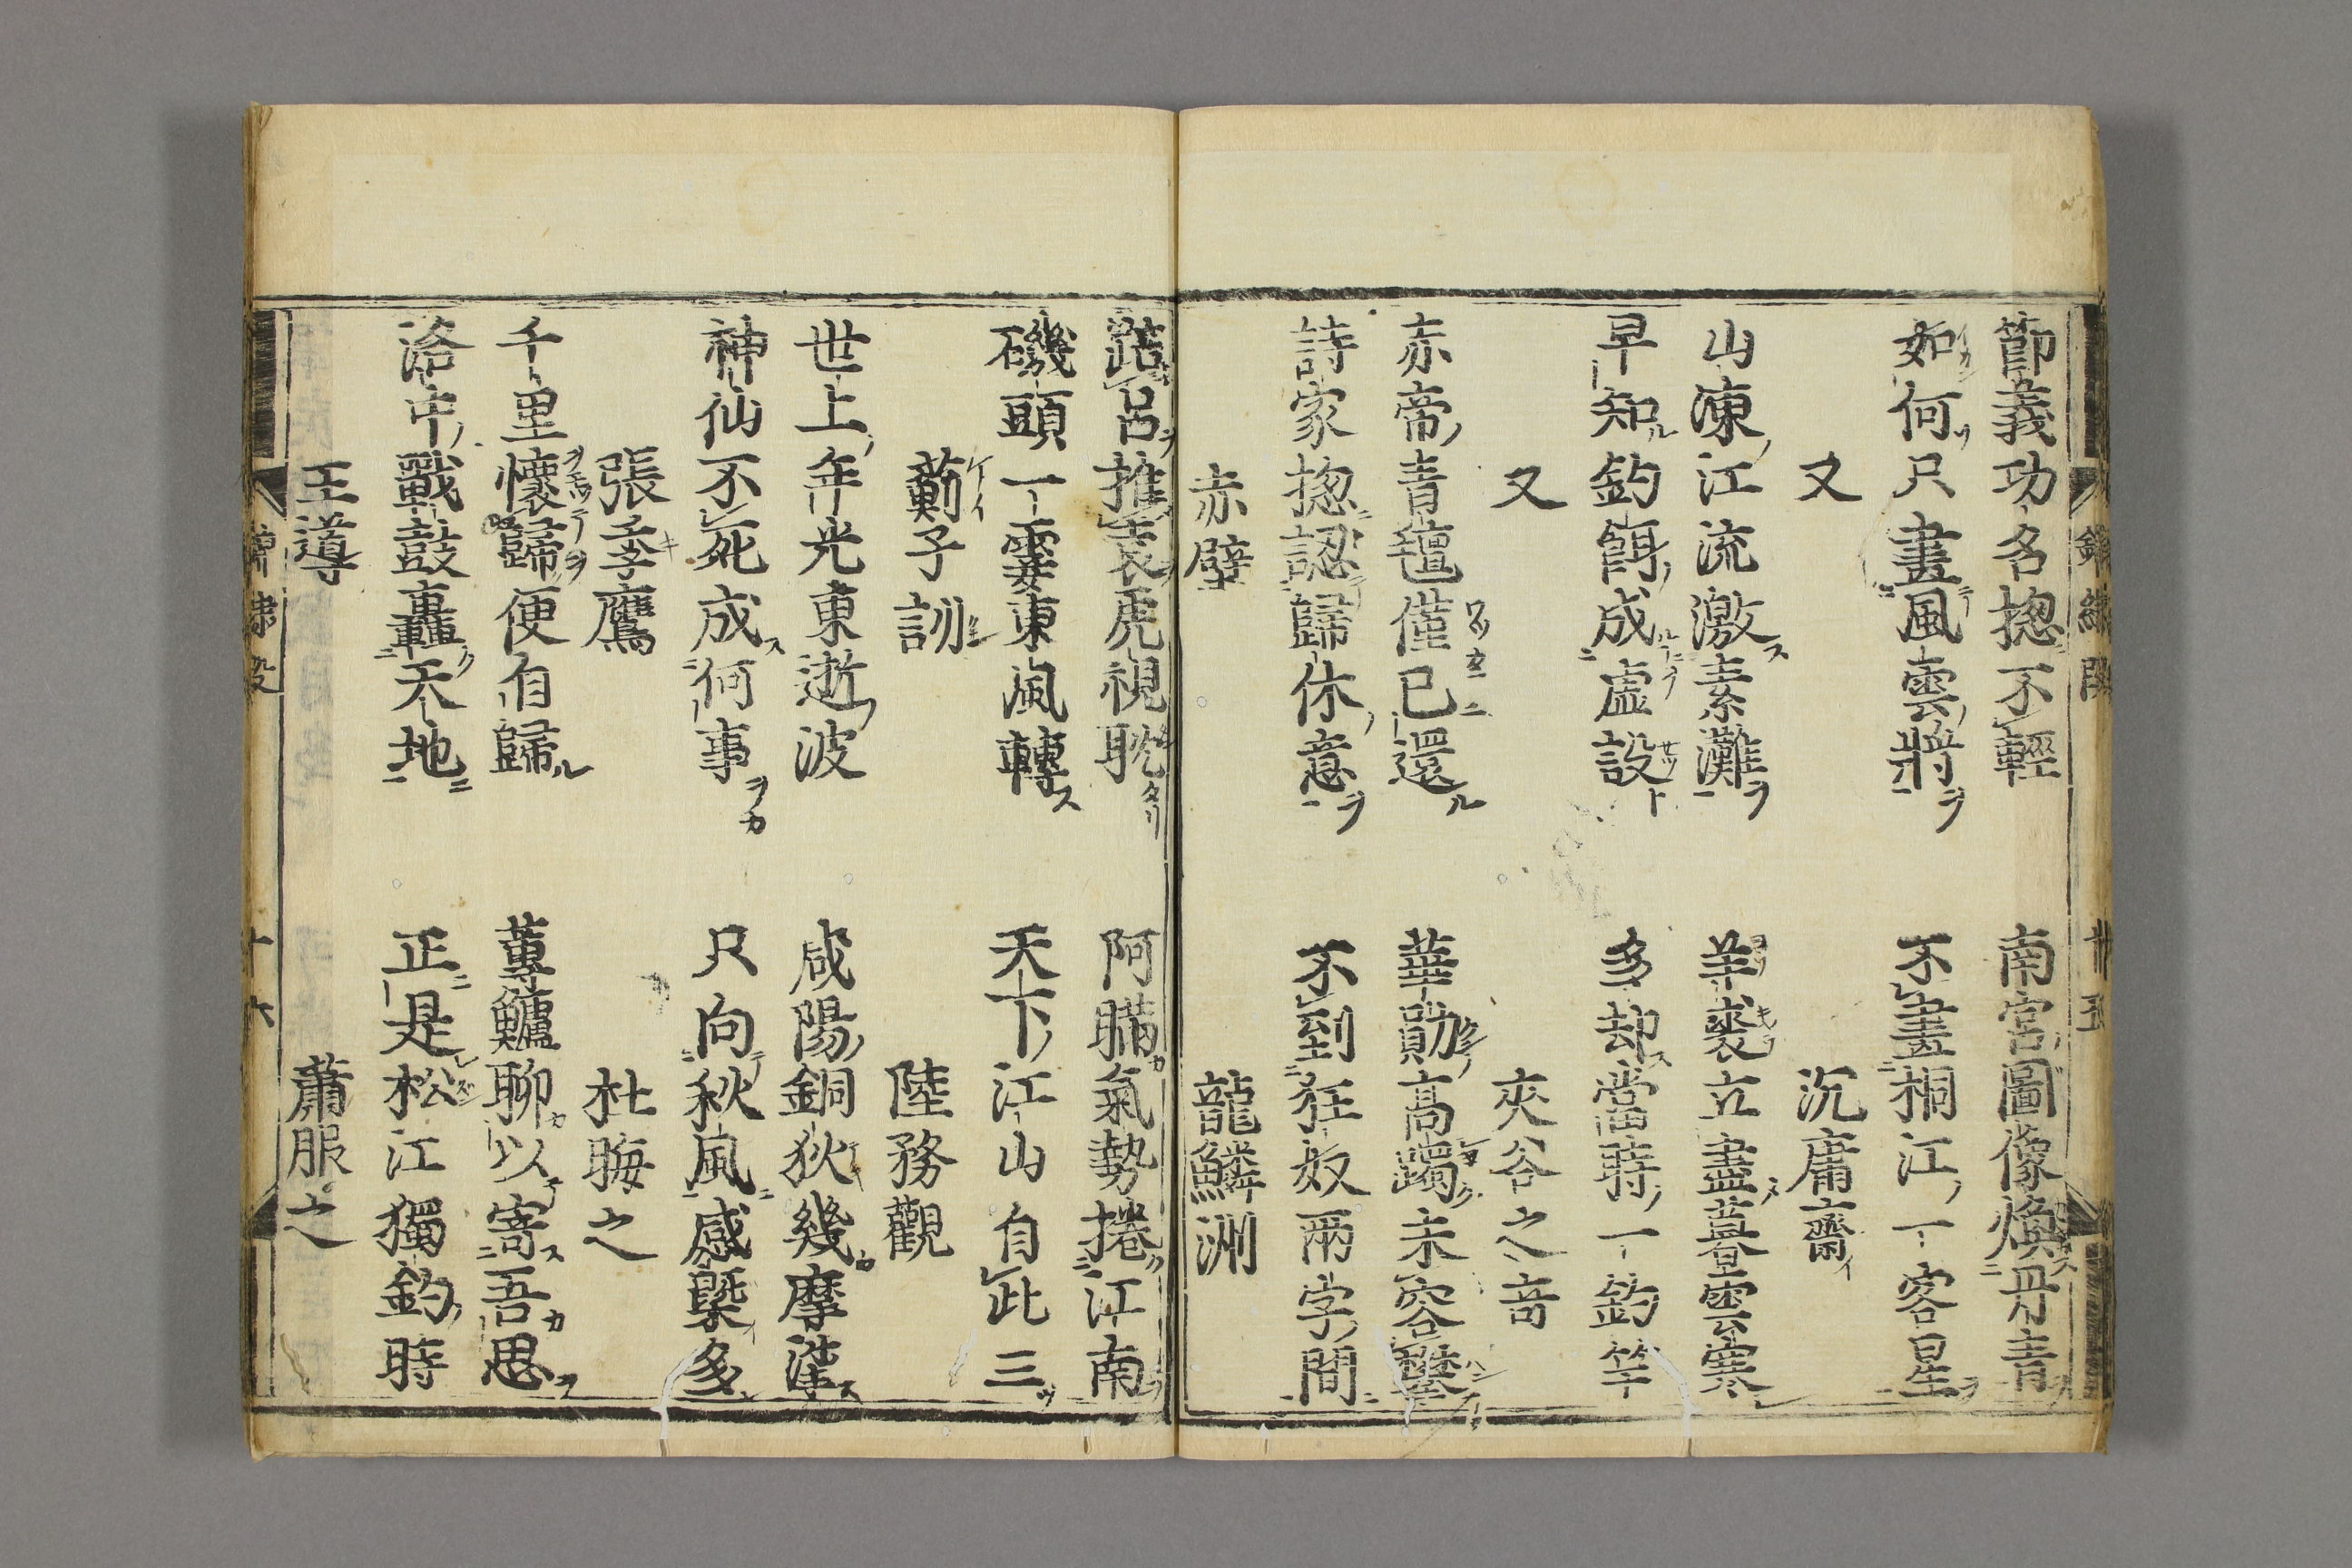 節義功名揔不輕　南宮圖像煥丹青
如何只畫風雲將　不畫桐江一客星
又　沉庸齋
山凍江流激素灘　羊裘立盡暮雲寒
早知釣餌成虛設　多却當時一釣竿
又　夾谷之音
赤帝青氊僅已還　華勛高躅未容攀
詩家揔認歸休意　不到狂奴兩字間
赤壁　龍鱗洲
踣呂推袁虎視眈　阿瞞氣勢捲江南
磯頭一霎東風轉　天下江山自此三
薊子訓　陸務觀
世上年光東逝波　咸陽銅狄幾摩挲
神仙不死成何事　只向秋風感槩多
張季鷹　杜晦之
千里懷歸便自歸　蓴鱸聊以寄吾思
洛中戰鼓轟天地　正是松江獨釣時
王導　蕭服之
錦繡段
十六